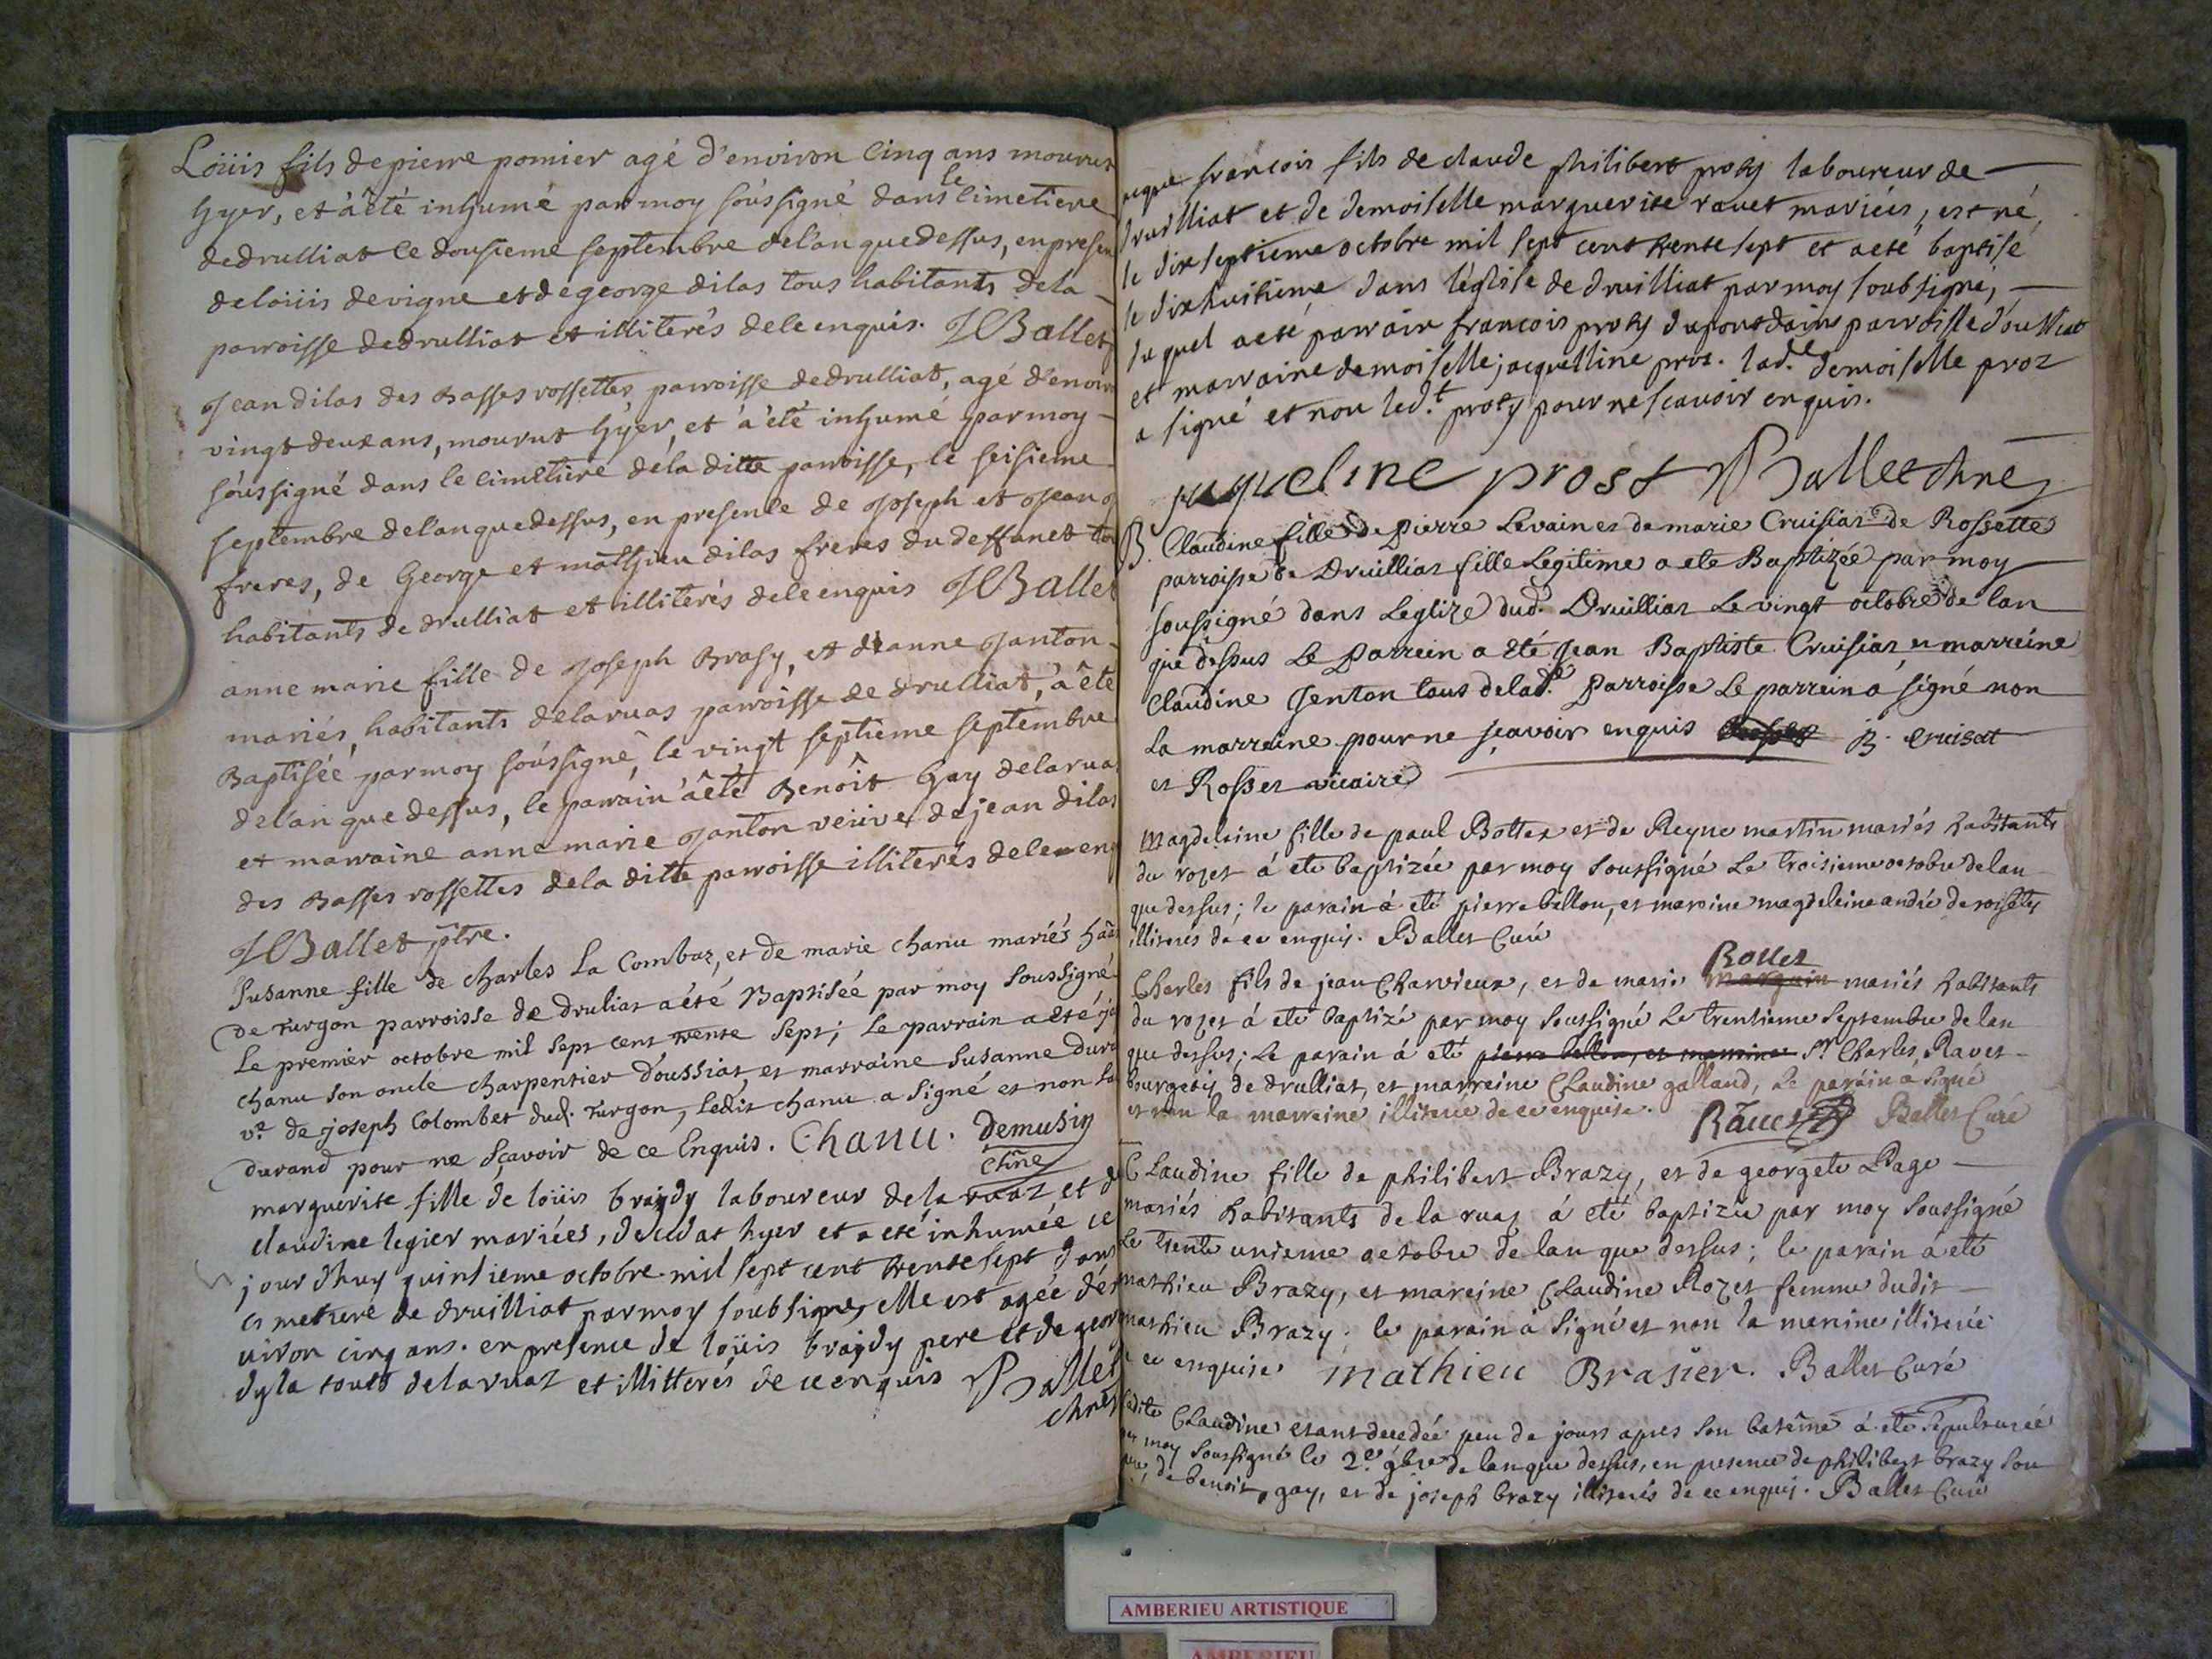 Loüis fils de pierre pomier agé d'environ cinq ans mourut
hyer, et à êté inhumé par moy soussigné dans le cimetiere
de drulliat le dousieme septembre de lan que dessus, en presen
de loüis de vigne et de george dilas tous habitants de la
parroisse de drulliat et illiterés de ce enquis. JBallet
Jean dilas des Basses rossettes parroisse de drulliat, agé d'enviro
vingt deux ans, mourut hyer, et à êté inhumé par moy
soussigné dans le cimetiere de la ditte parroisse, le seisieme
septembre de lan que dessus, en presence de Joseph et Jean
freres, de George et mathieu dilas freres du deffunct to
habitants de drulliat et illiterés de ce enquis JBallet
anne marie fille de Joseph Brasy, et d'anne Janton
mariés, habitants de la ruas parroisse de drulliat, à êté
Baptisée par moy soussigné, le vingt septieme septembre
de lan que dessus, le parrain à êté Benoît Gay de la rua
et marraine anne marie Janton veüve de jean dilas
des Basses rossettes de la ditte parroisse illiterés de ce enq
JBallet ptre.
Susanne fille de charles La Combaz, et de marie chanu mariés hãa
de Turgon parroisse de druliat a été Baptisée par moy soussigné
Le premier octobre mil sept cent trente sept; Le parrain a été
chanu son oncle charpentier doussiat et marraine Susanne dura
ve de joseph Colombet dud. Turgon, ledit chanu a signé et non la
durand pour ne sçavoir de ce Enquis. Chanu. Demusy
marguerite fille de loüis braydy laboureur de la ruaz et d
claudine legier mariées, decedat hyer et a eté inhumée ce
jour d'huy quinsieme octobre mil sept cent trente sept dans
cimetiere de druilliat par moy soubsigné, elle est agée d'en
viron cinq ans. en presence de loüis braydy pere et de geor
dyla touts de la ruaz et illitterés de ce enquis Ballet
françois fils de claude philibert prost laboureur de
druilliat et de demoiselle marguerite ravet mariées, est né
le dix septieme octobre mil sept cent trente sept et a eté baptisé
le dixhuitieme dans l'eglise de druilliat par moy soubsigné,
duquel a eté parrain françois prost du pont dain parroisse d'oussiat
et marraine demoiselle jacquelline prost. lad.e demoiselle proz
a signé et non led.t prost pour ne scavoir enquis.
jaqueline prost Ballet
B. Claudine fille de Pierre Levain et de marie Cruisiat de Rossette
parroisse de Druilliat fille Legitime a ete Baptizée par moy
soussigné dans Leglize dud. Druilliat Le vingt octobre de lan
que dessus Le Parrein a Eté Jean Baptiste Cruisiat et marreine
Claudine Jenton tous de lad.e Parroisse Le parrein a signé non
La marreine pour ne sçavoir enquis B. cruisat
et Rosset vicaire
Magdeleine fille de paul Bottex et de Reyne martin mariés habitants
du rozet á eté baptizée par moy soussigné Le troisieme octobre de lan
que dessus; le parain á eté pierre bellon, et mareine magdeleine andré de rosettes
illiterés de ce enquis. Ballet Curé
Rollet
Charles fils de jean Charvieux, et de marie marguin mariés habitants
du rozet á eté baptizé par moy soussigné Le trentieme Septembre de lan
que dessus; Le parain á eté pierre bellon, et marreine Sr Charles Ravet
bourgeois de drulliat, et marreine Claudine galland, Le parain á signé
et non la marreine illiterée de ce enquise. Rauet Ballet Curé
Claudine fille de philibert Brazy, et de georgete Page
mariés habitants de la ruaz á eté baptizée par moy soussigné
Le trente unieme octobre de lan que dessus; le parain á eté
mathieu Brazy, et mareine Claudine Rozet femme dudit
mathieu Brazy. le parain á signé et non la mareine illiterée
de ce enquise Mathieu Brasier. Ballet Curé
Ladite Claudine etant decedée peu de jours apres son batême á eté sepulturée
par moy soussigné le 2e 9bre de lan que dessus, en presence de philibert brazy son
pere, de benoit gay, et de joseph brazy illiterés de ce enquis. Ballet Curé
AMBERIEU ARTISTIQUE
AMBERIEU